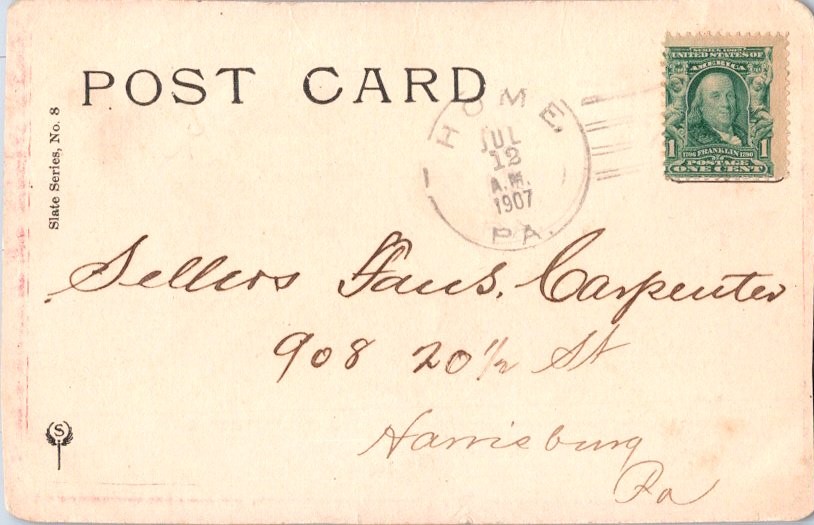 POST CARD
Slate Series, No. 8
HOME,
JUL
12
A.M.
1907
PA.
SERIES 1902
UNITED STATES OF
AMERICA
1 1706 FRANKLIN 1790 1
POSTAGE
ONE CENT
Sellers Faus, Carpenter
908 20½ St
Harrisburg
Pa
S